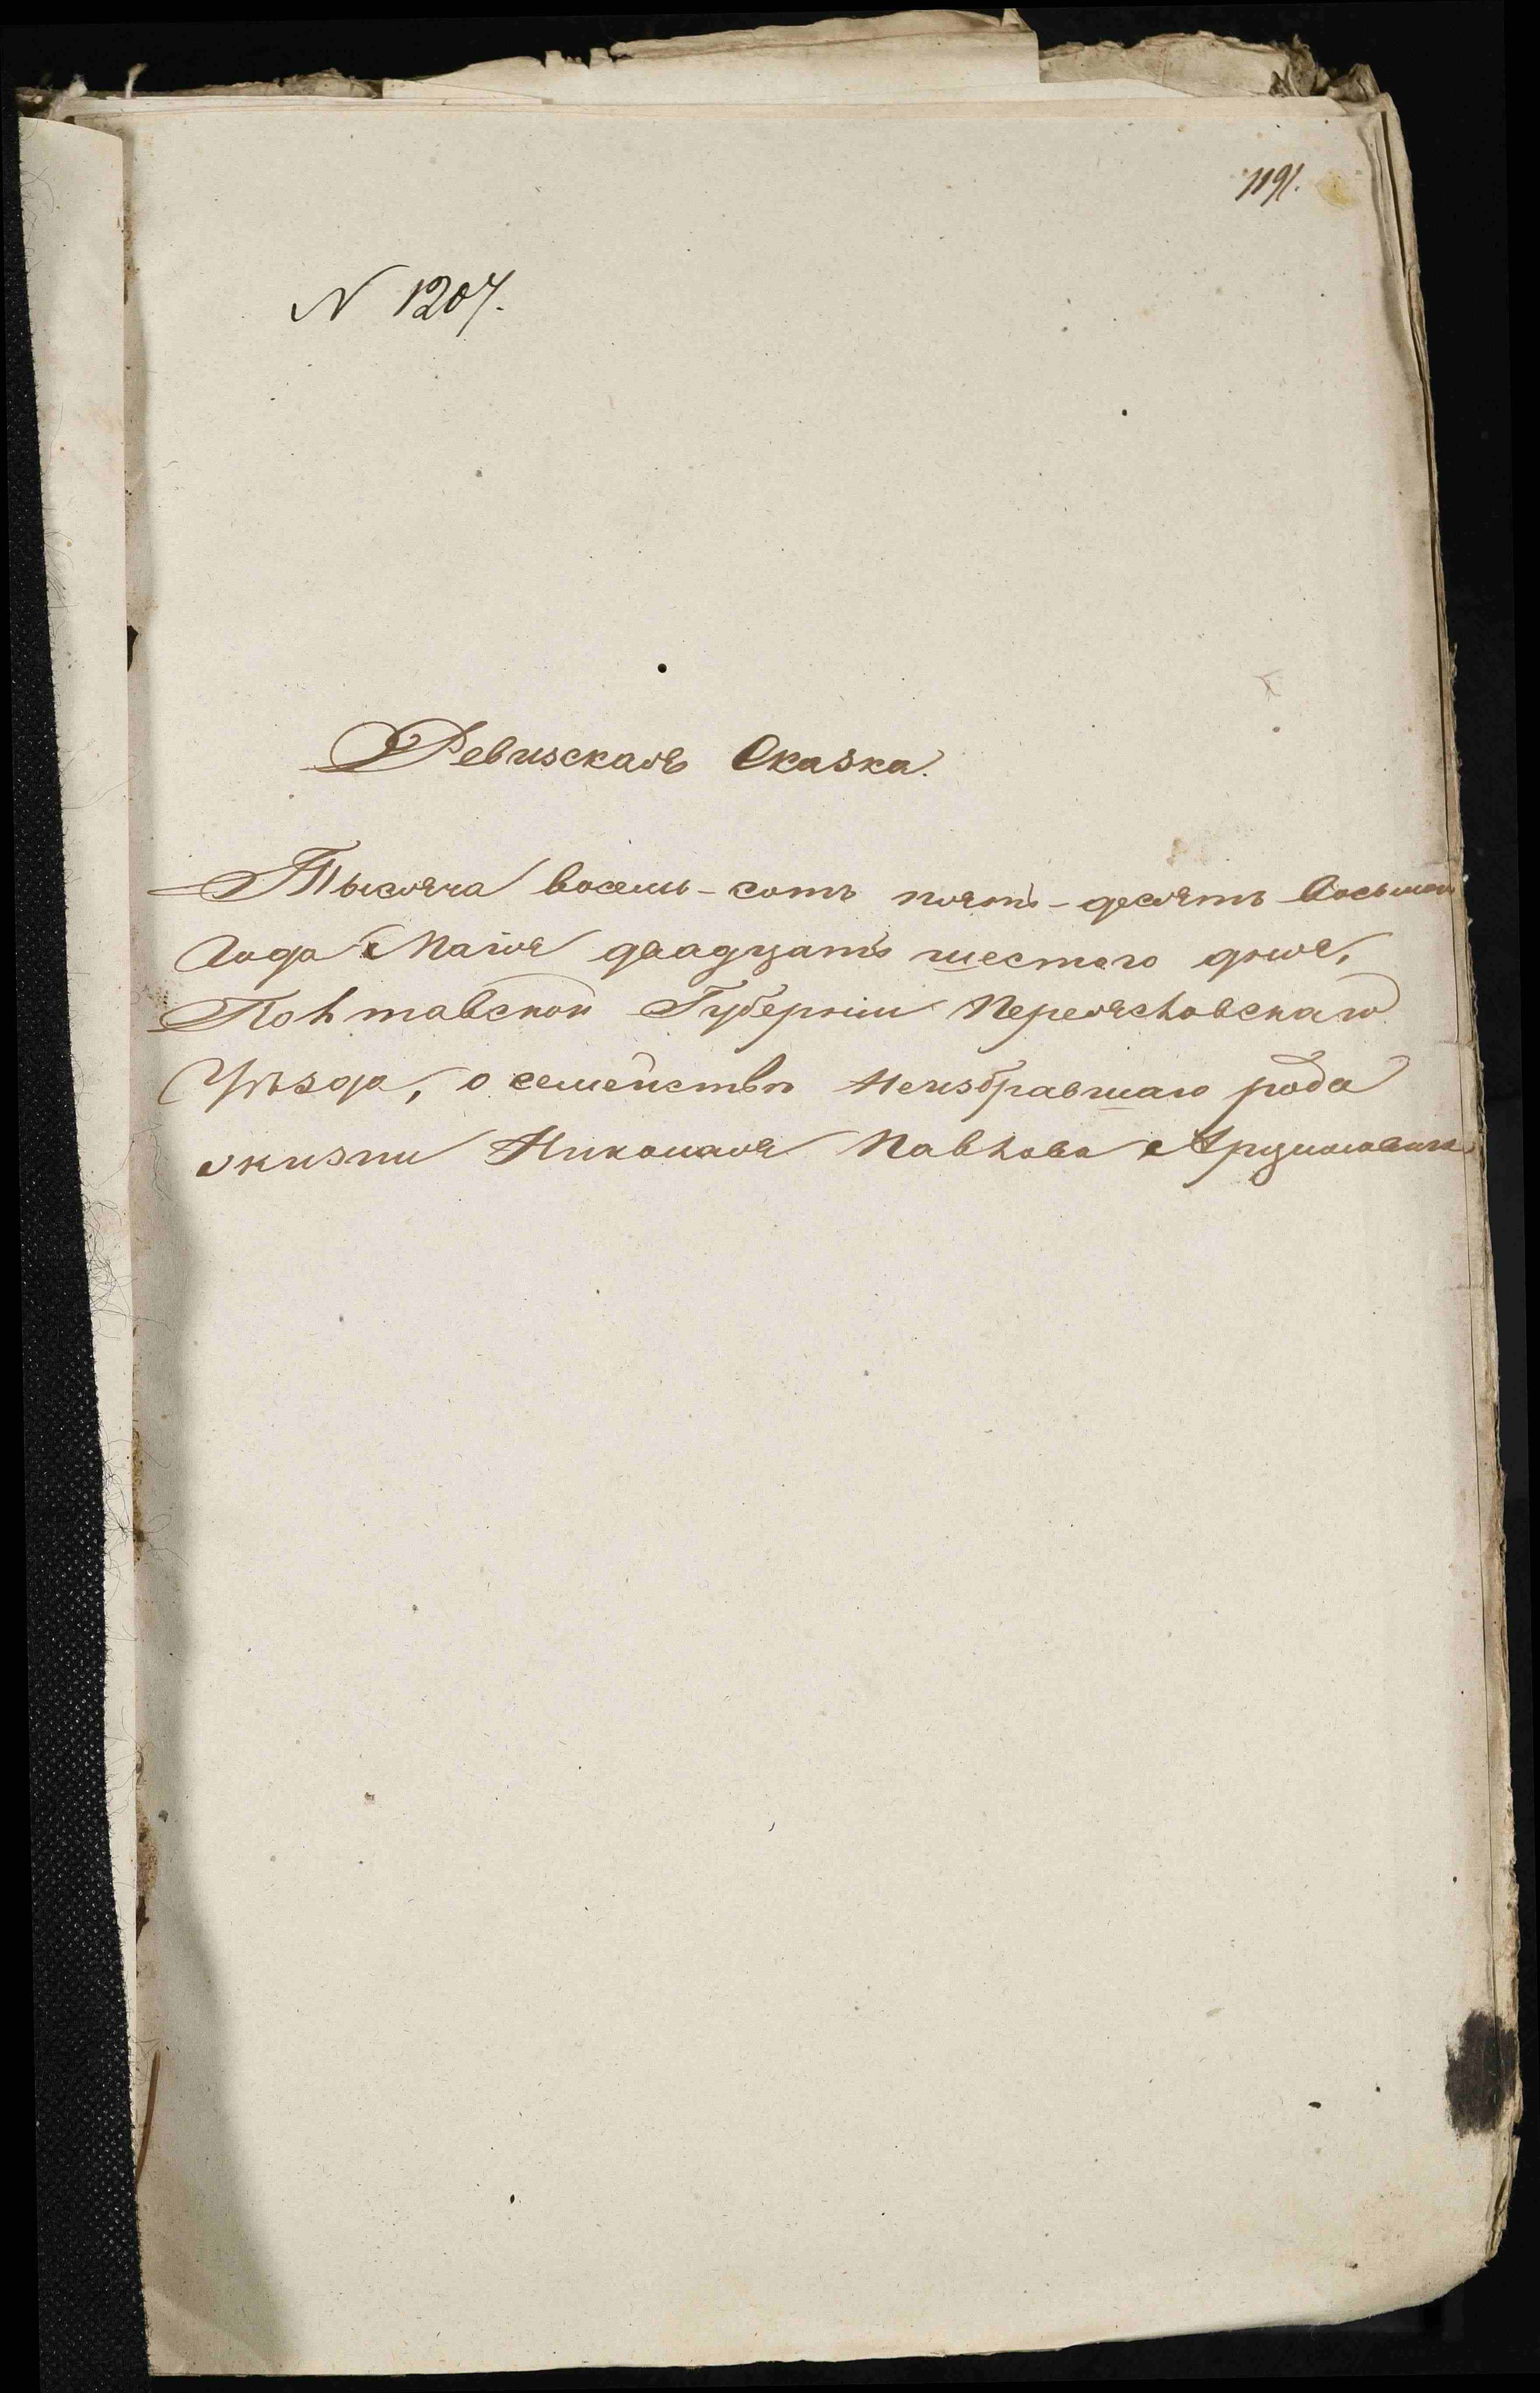 1191.
N 1207.
Ревизская Сказка.
Тысяча восемь-сотъ пять-десятъ восьмаго
Года Маія двадцать шестого дня,
Полтавской Губерніи Переясловскаго
Уѣзда, о семействѣ Неизбравшаго рода
жизни Николая Павлова